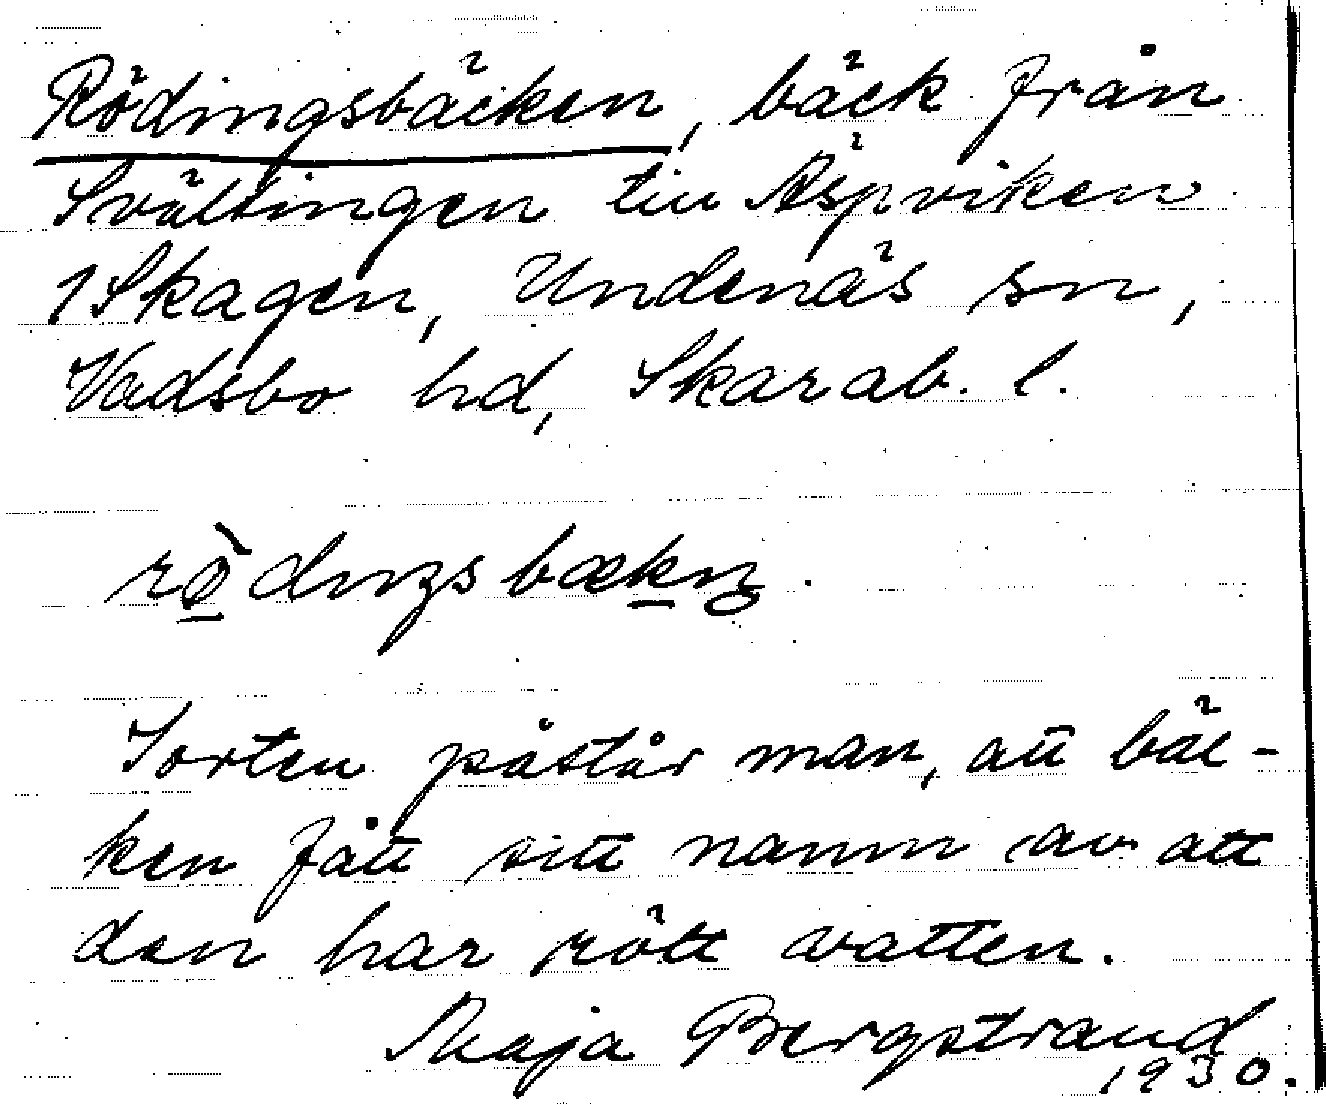 Rödingsbäcken, bäck från
Svältingen till Äspviken
i Skagen, Undenäs sn,
Vadsbo hd, Skarab. l.
Iorten påstår man, att bäc-
ken fått sitt namn av att
den har rött vatten.
Maja Bergstrand
1930.